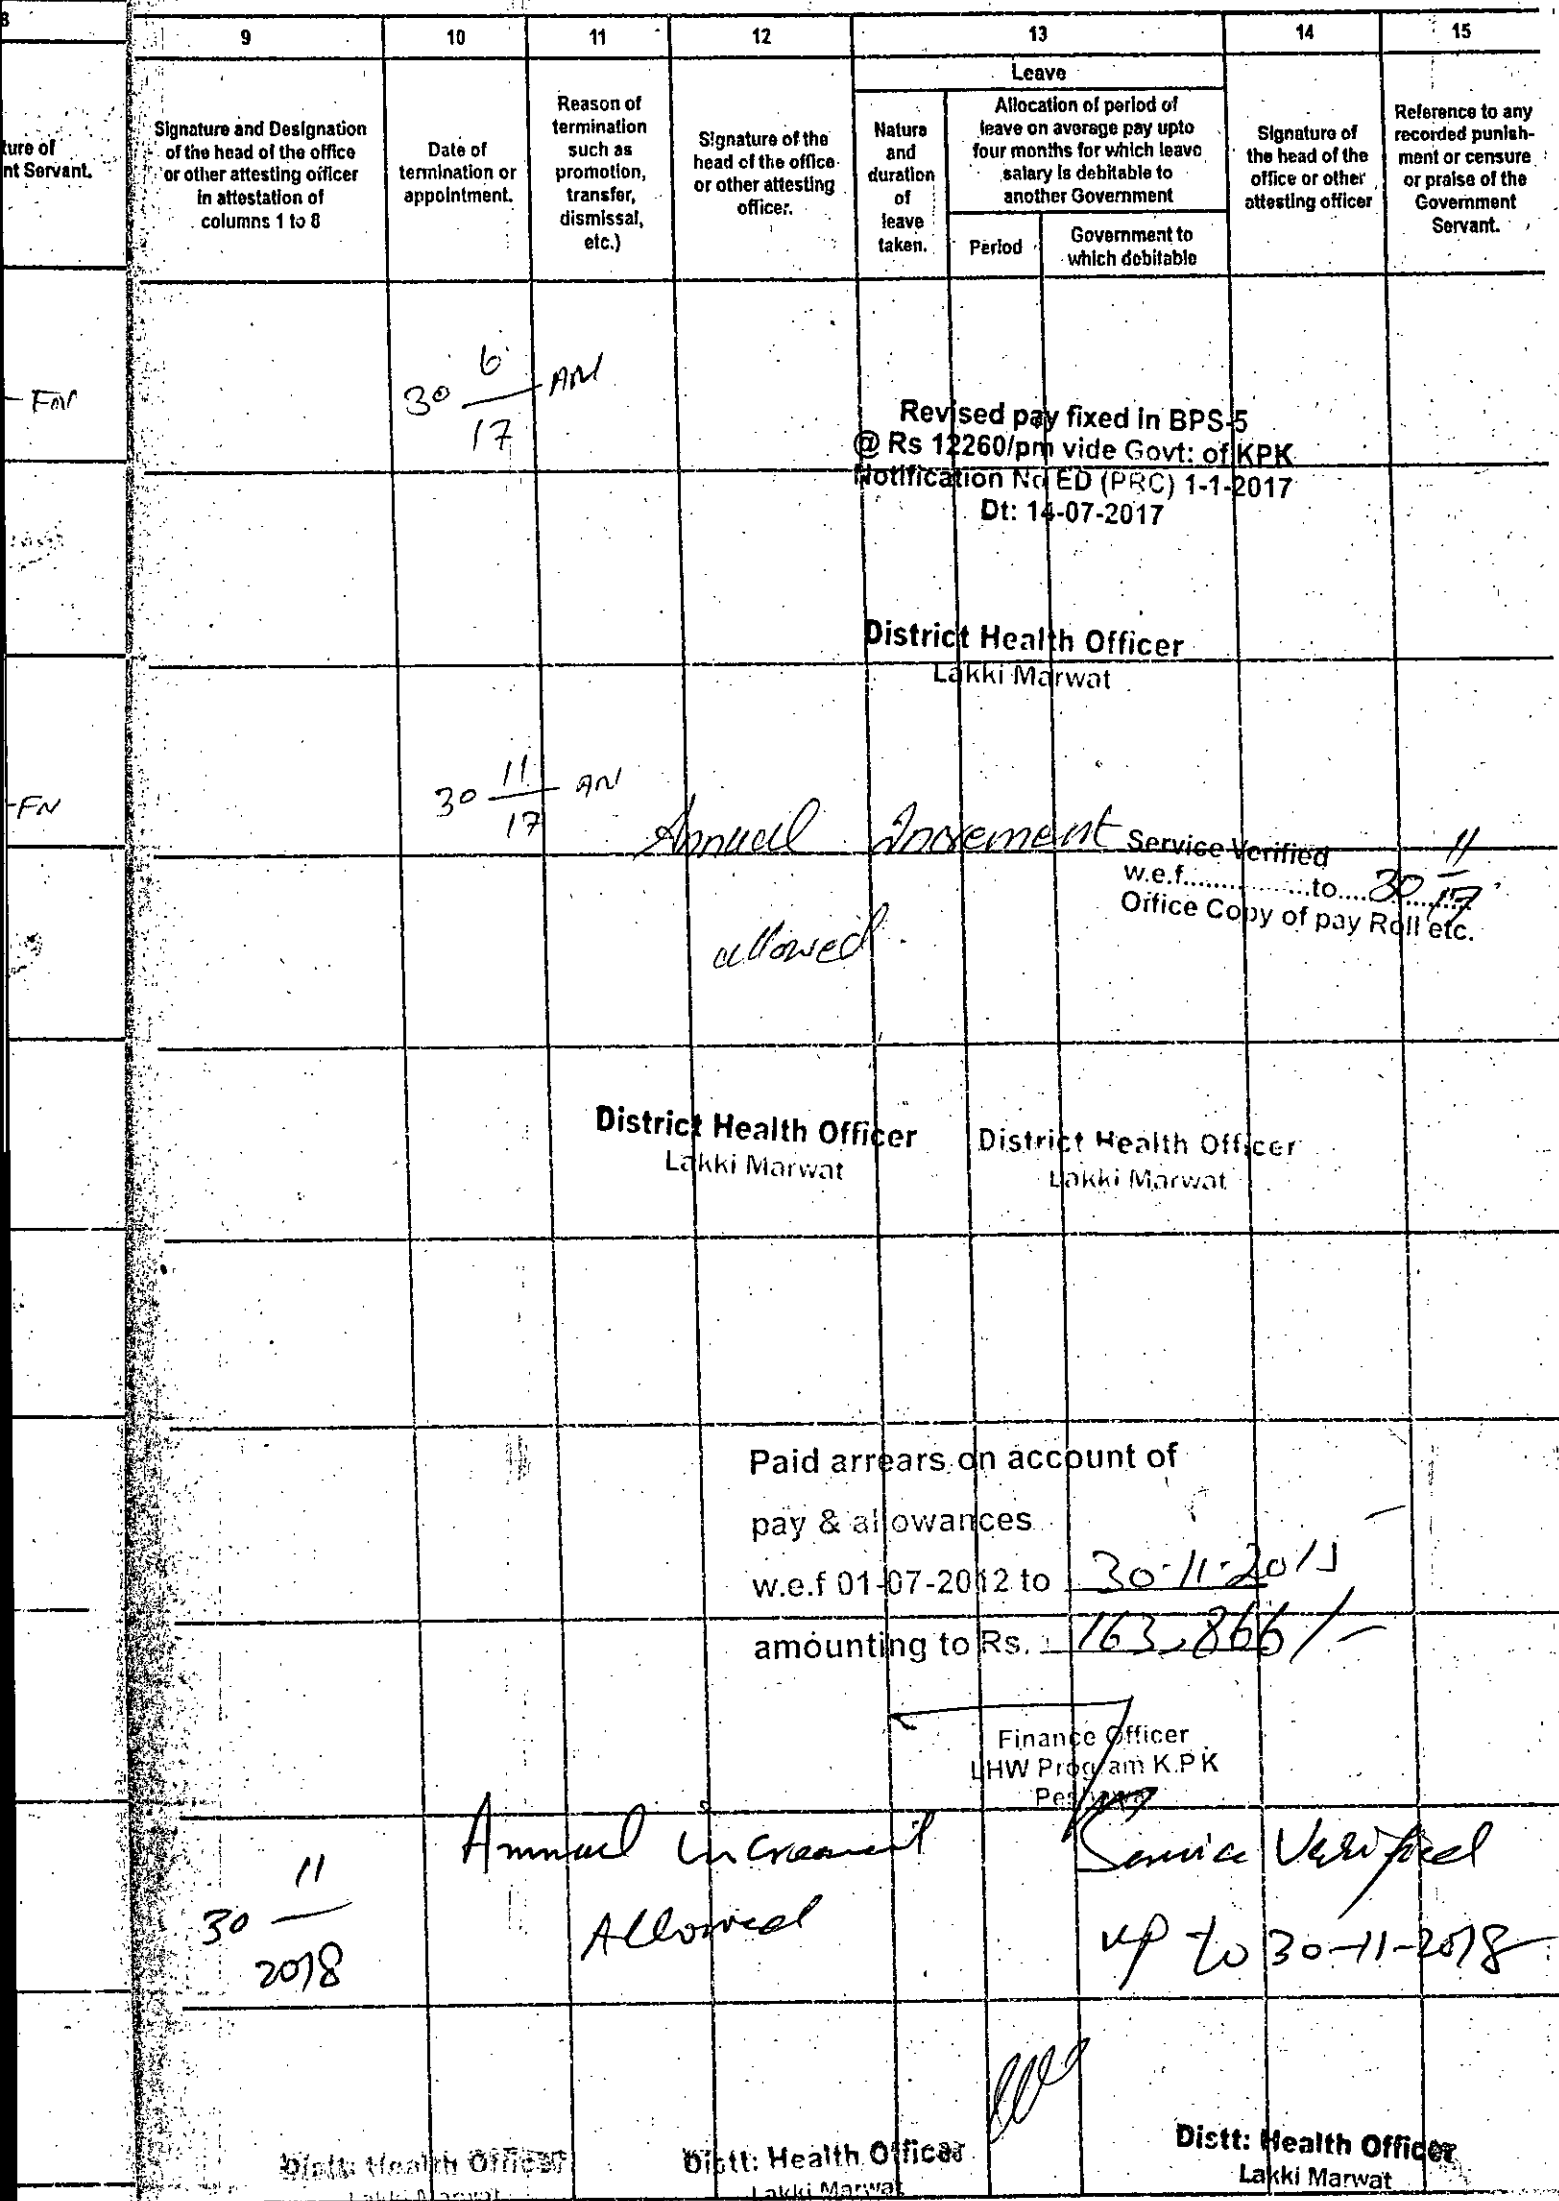 8
9
10
11
12
13
14
15
ture of
nt Servant.
Signature and Designation
of the head of the office
or other attesting officer
in attestation of
columns 1 to 8
Date of
termination or
appointment.
Reason of
termination
such as
promotion,
transfer,
dismissal,
etc.)
Signature of the
head of the office
or other attesting
officer.
Leave
Nature
and
duration
of
leave
taken.
Allocation of period of
leave on average pay upto
four months for which leave
salary is debitable to
another Government
Period
Government to
which debitable
Signature of
the head of the
office or other
attesting officer
Reference to any
recorded punish-
ment or censure
or praise of the
Government
Servant.
FN
30 6/17 AN
Revised pay fixed in BPS-5
@ Rs 12260/pm vide Govt: of KPK
Notification No ED (PRC) 1-1-2017
Dt: 14-07-2017
District Health Officer
Lakki Marwat
FN
30 11/17 AN
Annual Increment
allowed.
Service Verified
w.e.f................to....30 11/17
Office Copy of pay Roll etc.
District Health Officer
Lakki Marwat
District Health Officer
Lakki Marwat
Paid arrears on account of
pay & allowances
w.e.f 01-07-2012 to 30-11-201
amounting to Rs. 163,866/-
Finance Officer
LHW Program K.P.K
Peshawar
30 11/2018
Annual increament
Allowed
Service Verified
up to 30-11-2018
Distt: Health Officer
Distt: Health Officer
Lakki Marwat
Distt: Health Officer
Lakki Marwat